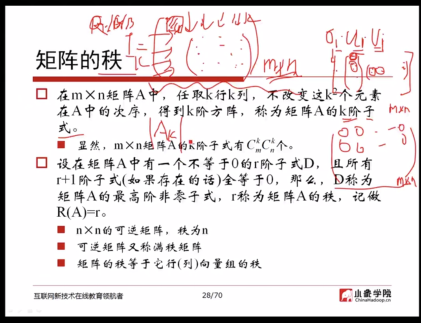 矩阵的秩
在m×n矩阵A中，任取k行k列，不改变这k²个元素
在A中的次序，得到k阶方阵，称为矩阵A的k阶子
式。
显然，m×n矩阵A的k阶子式有C_m^k C_n^k个。
设在矩阵A中有一个不等于0的r阶子式D，且所有
r+1阶子式(如果存在的话)全等于0，那么，D称为
矩阵A的最高阶非零子式，r称为矩阵A的秩，记做
R(A)=r。
n×n的可逆矩阵，秩为n
可逆矩阵又称满秩矩阵
矩阵的秩等于它行(列)向量组的秩
互联网新技术在线教育领航者
28/70
小象学院
ChinaHadoop.cn
m×n
|A_k|
m×n
m×n